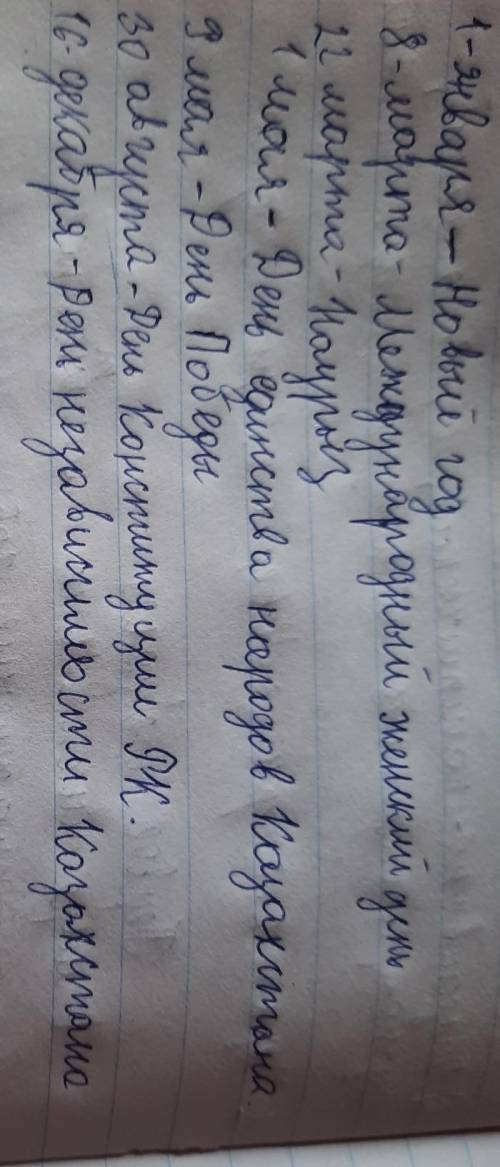 1-января - Новый год.
8-марта- Международный женский день
22 марта- Наурыз
1 мая - День единства народов Казахстана
9 мая - День Победы
30 августа - День Конституции РК.
16 декабря - День независимости Казахстана